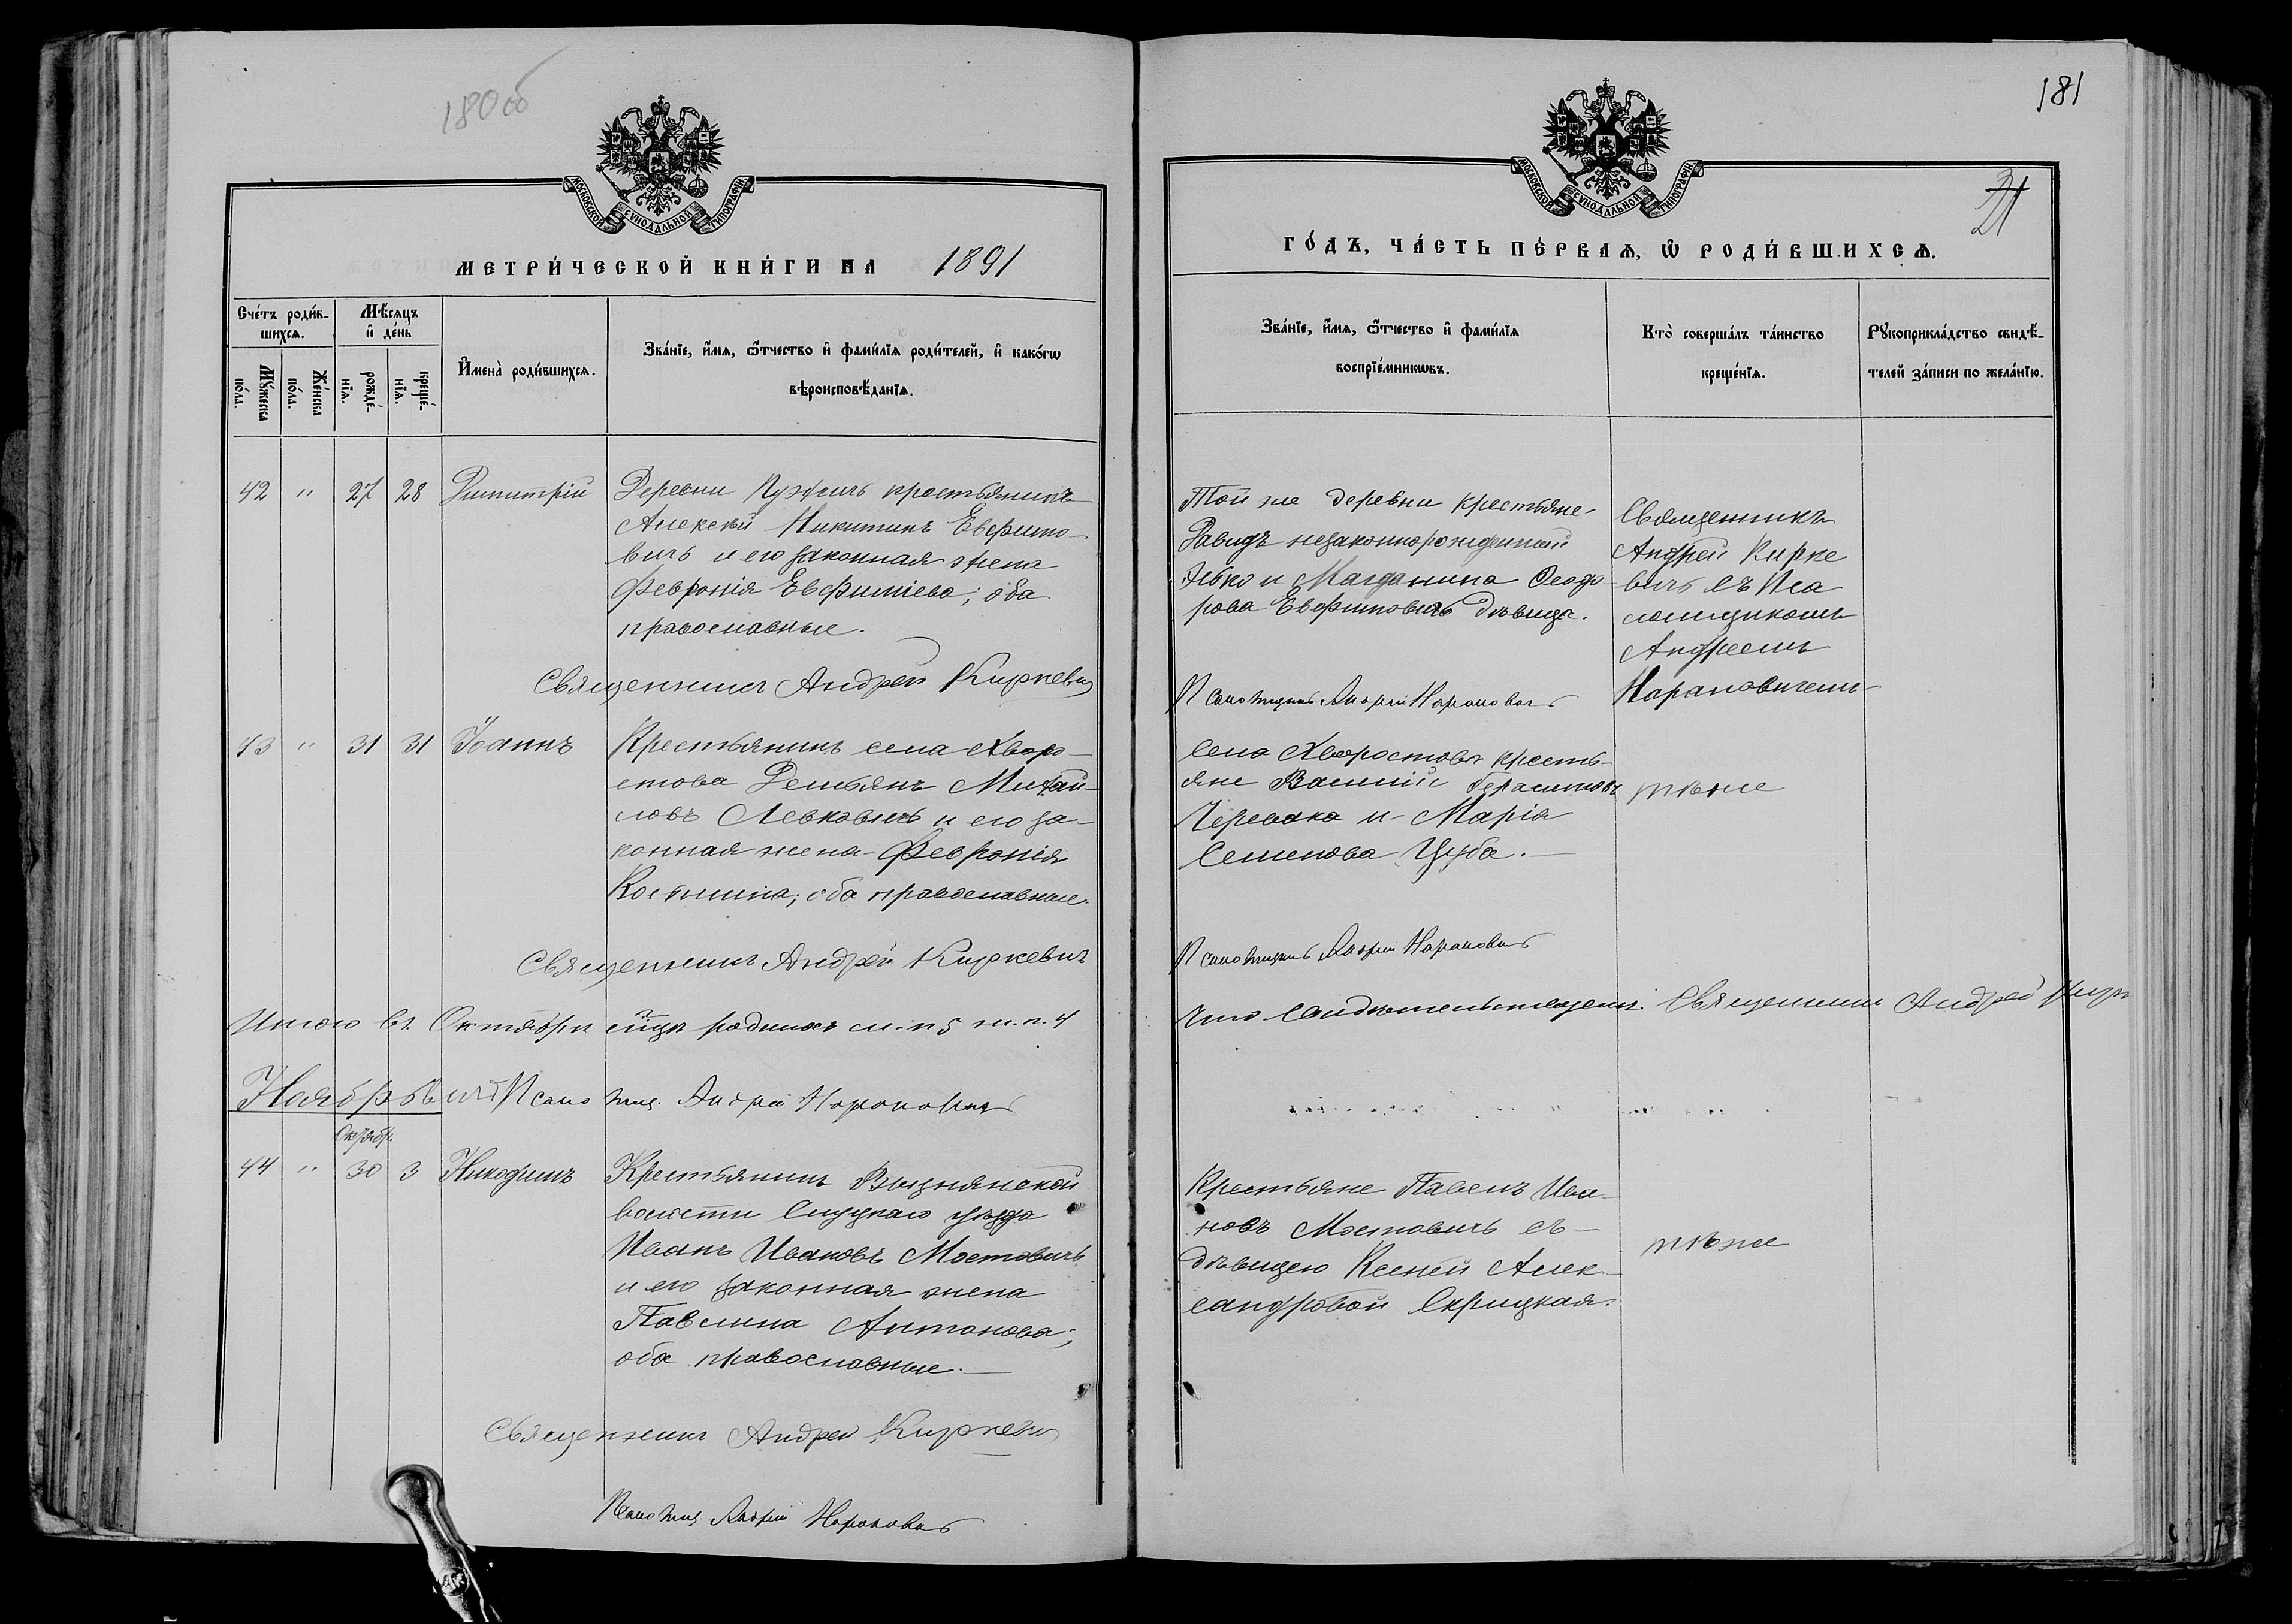 180 об
МОСКОВСКОЙ СѴНОДАЛЬНОЙ ТИПОГРАФІИ
МЕТРИ́ЧЕСКОЙ КНИ́ГИ НА 1891
Сче́тъ роди́в-
шихсѧ.
Мѣ́сѧцъ
и҆ де́нь
Мꙋ́жеска
по́ла.
Же́нска
по́ла.
рожде́-
нїѧ.
креще́-
нїѧ.
И҆мена̀ роди́вшихсѧ.
Зва́нїе, и҆́мѧ, ѻ҆́тчество и҆ фами́лїѧ роди́телей, и҆ како́гѡ
вѣроисповѣ́данїѧ.
42 " 27 28 Димитрій
Деревни крестьянинъ
Алексѣй Никитинъ Евфимо-
вичъ и его законная жена
Февронія Евфиміева; оба
православные.
Священникъ Андрей Киркевич
43 " 31 31 Іоаннъ
Крестьянинъ села Хворо-
стова Демьянъ Михай-
ловъ Левковичъ и его за-
конная жена Февронія
Косьмина; оба православные.
Священникъ Андрей Киркевичъ
Итого въ Октябрѣ м-цѣ родилось м. п. 5 ж. п. 4
Ноябрь Псаломщ. Андрей Наранович
Октябр.
44 " 30 3 Никодимъ
Крестьянинъ Вызнянской
волости Слуцкаго уѣзда
Иванъ Ивановъ Мостовичъ
и его законная жена
Павлина Антонова;
оба православные.
Священникъ Андрей Киркевич
Псаломщ Андрей Наранович
181
21
МОСКОВСКОЙ СѴНОДАЛЬНОЙ ТИПОГРАФІИ
ГО́ДЪ, ЧА́СТЬ ПЕ́РВАѦ, Ѡ҆ РОДИ́ВШИХСѦ.
Зва́нїе, и҆́мѧ, ѻ҆́тчество и҆ фами́лїѧ
воспрїе́мникѡвъ.
Кто̀ соверша́лъ та́инство
креще́нїѧ.
Рꙋкоприкла́дство свидѣ́-
телей за́писи по жела́нїю.
Той же деревни крестьяне-
Давидъ незаконнорожденный
и Магдалина Ѳеодо-
рова Евфимовичъ дѣвица.
Псаломщикъ Андрей Наранович
Священникъ
Андрей Кирке
вичъ съ Пса
ломщикомъ
Андреемъ
Нарановичемъ
Села Хворостова кресть-
яне Василій Герасимовъ
Черевако и Марія
Семенова Цуба.
тѣже
Псаломщикъ Андрей Наранович
Что свидѣтельствуемъ. Священникъ Андрей Кирк
Крестьяне Павелъ Ива-
новъ Мостовичъ съ
дѣвицею Ксеней Алек-
сандровой Скрицкая.
тѣже